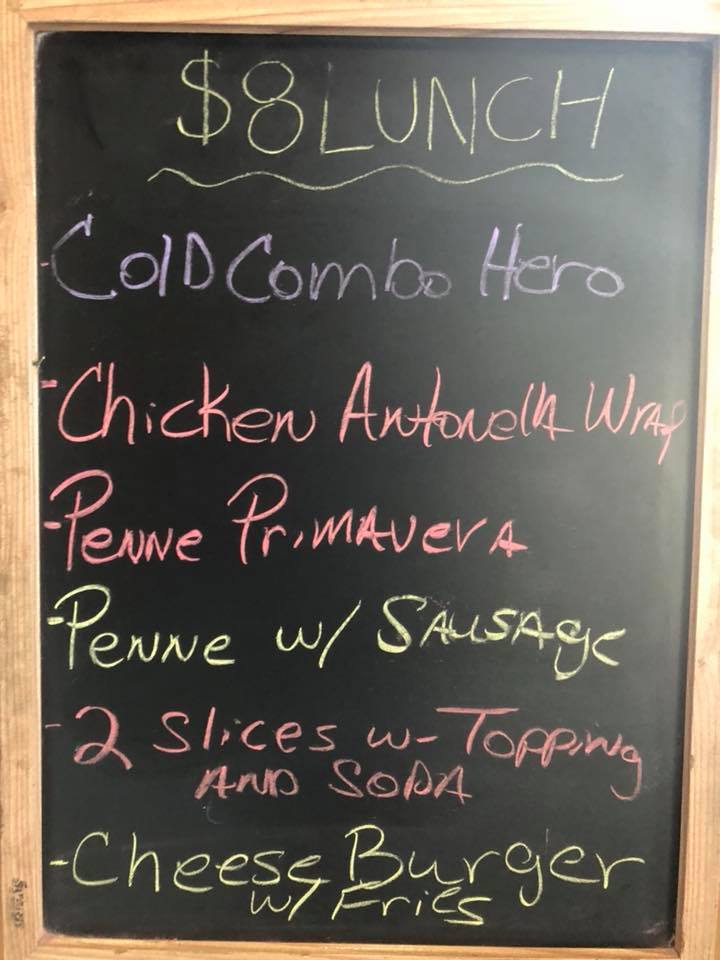 $8 LUNCH
- Cold Combo Hero
- Chicken Antonella Wrap
- Penne Primavera
- Penne w/ Sausage
- 2 Slices w- Topping
AND SODA
- Cheese Burger
w/ Fries